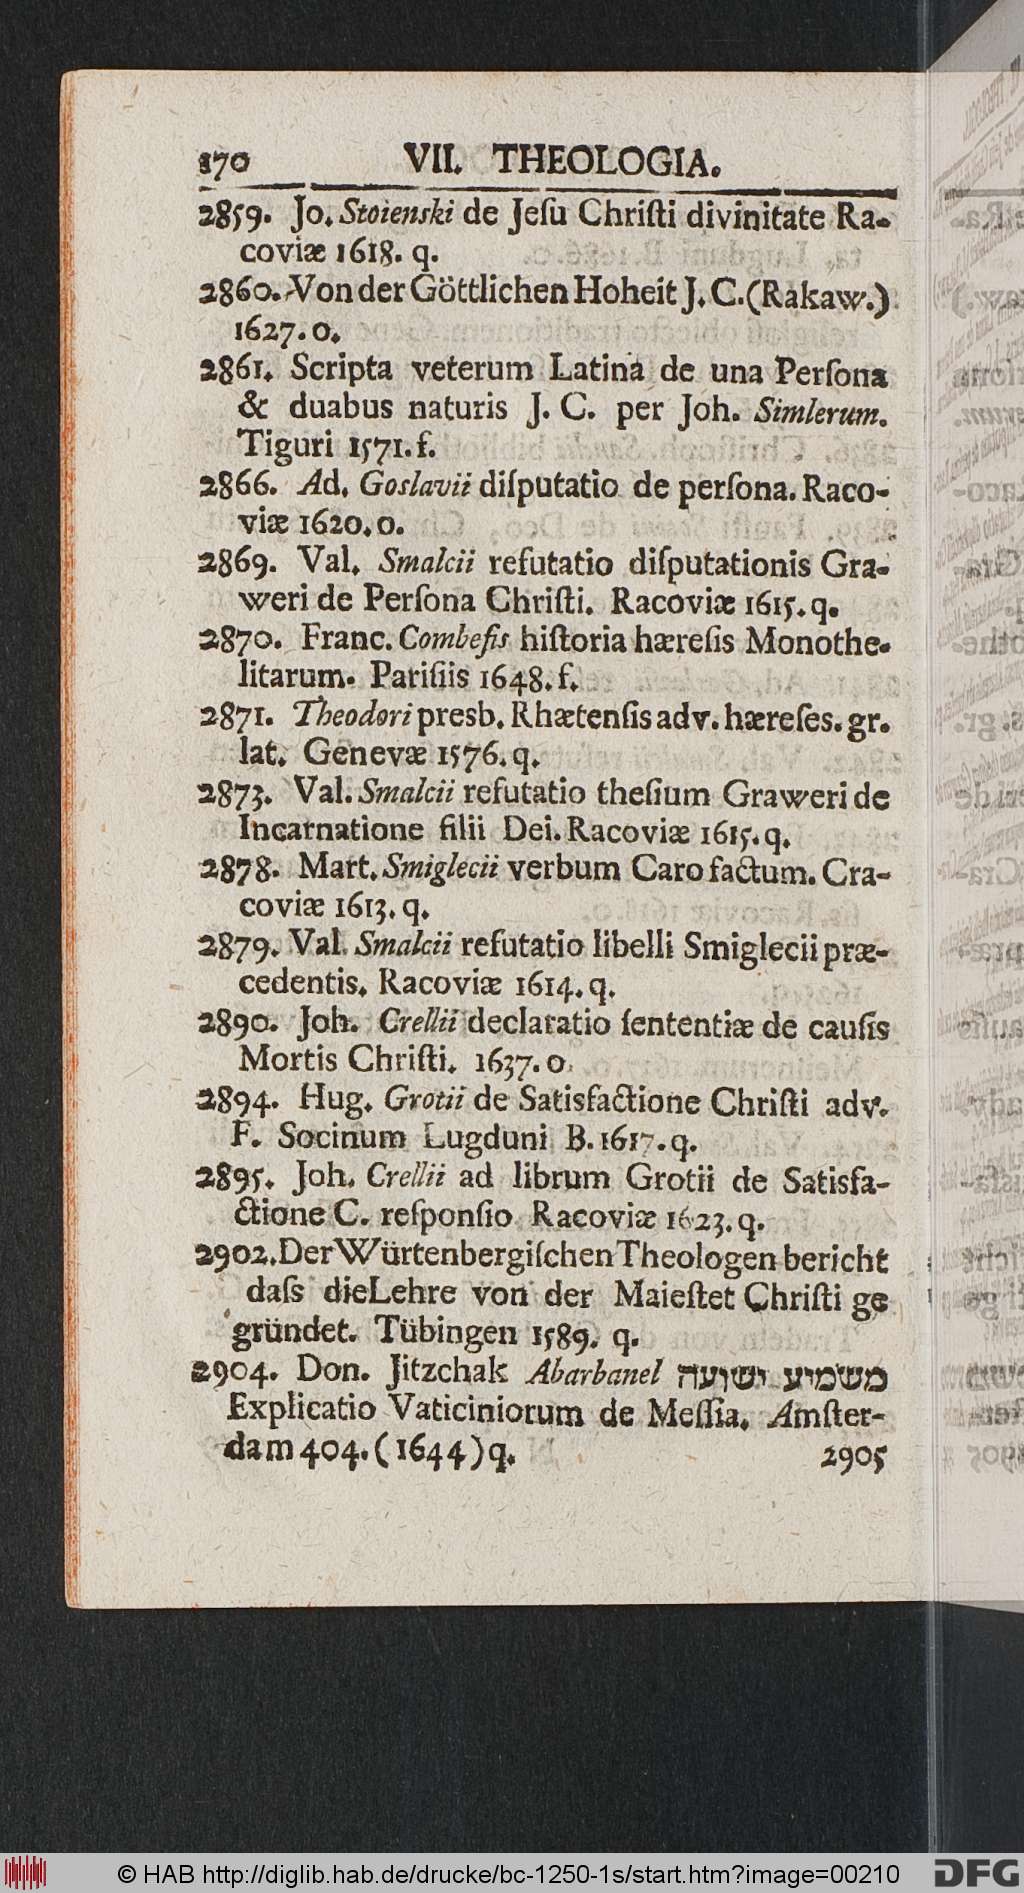 170 VII. THEOLOGIA.
2859. Jo. Stoienski de Jeſu Chriſti divinitate Ra-
coviæ 1618. q.
2860. Von der Göttlichen Hoheit J. C. (Rakaw.)
1627. o.
2861. Scripta veterum Latina de una Perſona
& duabus naturis J. C. per Joh. Simlerum.
Tiguri 1571. f.
2866. Ad. Goslavii diſputatio de perſona. Raco-
viæ 1620. o.
2869. Val. Smalcii refutatio diſputationis Gra-
weri de Perſona Chriſti. Racoviæ 1615. q.
2870. Franc. Combefis hiſtoria hæreſis Monothe-
litarum. Pariſiis 1648. f.
2871. Theodori presb. Rhætenſis adv. hæreſes. gr.
lat. Genevæ 1576. q.
2873. Val. Smalcii refutatio theſium Graweri de
Incarnatione filii Dei. Racoviæ 1615. q.
2878. Mart. Smiglecii verbum Caro factum. Cra-
coviæ 1613. q.
2879. Val. Smalcii refutatio libelli Smiglecii præ-
cedentis. Racoviæ 1614. q.
2890. Joh. Crellii declaratio ſententiæ de cauſis
Mortis Chriſti. 1637. o.
2894. Hug. Grotii de Satisfactione Chriſti adv.
F. Socinum Lugduni B. 1617. q.
2895. Joh. Crellii ad librum Grotii de Satisfa-
ctione C. reſponſio Racoviæ 1623. q.
2902. Der Würtenbergiſchen Theologen bericht
daſs die Lehre von der Maieſtet Chriſti ge
gründet. Tübingen 1589. q.
2904. Don. Jitzchak Abarbanel משמיע ישועה
Explicatio Vaticiniorum de Meſſia. Amſter-
dam 404. (1644) q. 2905
© HAB http://diglib.hab.de/drucke/bc-1250-1s/start.htm?image=00210 DFG